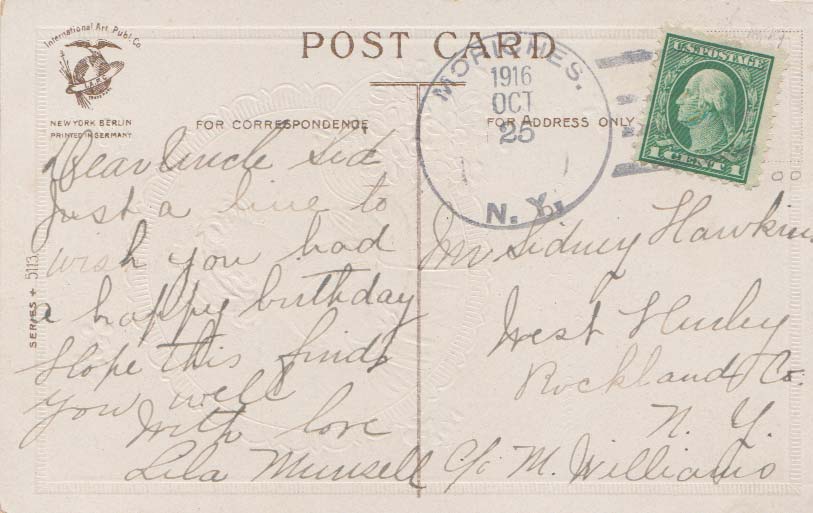 International Art Publ. Co.
NEW YORK BERLIN
PRINTED IN GERMANY
POST CARD
FOR CORRESPONDENCE
FOR ADDRESS ONLY
MORICHES.
1916
OCT
25
N. Y.
U.S. POSTAGE
1 CENT 1
SERIES 5113
Dear Uncle Sid
Just a line to
wish you had
a happy birthday
Hope this finds
you well
With love
Lila Munsell
Mr Sidney Hawkins
West Hurley
Rockland Co.
N. Y.
c/o M. Williams